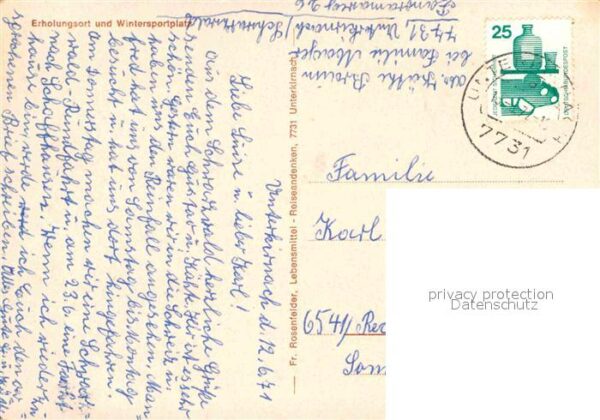 Erholungsort und Wintersportplatz
Unterkirnach d. 12.6.71
Liebe Luise u. lieber Karl!
Aus dem Schwarzwald herzliche Grüße
senden Euch Gustav u. Käthe. Hier ist es sehr
schön. Gestern waren wir in die Schweiz u.
haben uns den Rheinfall angesehen. Man-
fred hat uns von Samstag bis Montag
besucht u. hat uns dort hingefahren.
Am Donnerstag machen wir eine Schwarz-
wald-Rundfahrt u. am 23.6. eine Fahrt
nach Schaffhausen. Wenn ich wieder zu
hause bin, werde ich Euch den
Brief schreiben. Alles Gute
Fr. Rosenfelder, Lebensmittel - Reiseandenken, 7731 Unterkirnach
abs. Käthe
bei Familie
7731 Unterkirnach / Schwarzwald
25
DEUTSCHE BUNDESPOST
7731
Familie
Karl
6541
privacy protection
Datenschutz